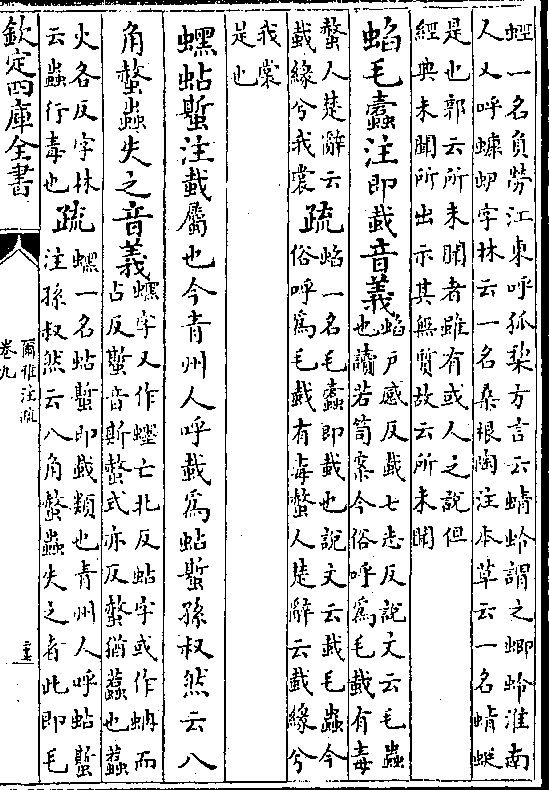 蛵一名負勞江東呼狐棃方言云蜻蛉謂之蝍蛉淮南
人又呼蠊𧊧字林云一名桑根陶注本草云一名蜻蜓
是也郭云所未聞者雖有或人之說但
經典未聞所出示其無質故云所未聞
蛅毛蠹注即蛓音義
蜭戶感反蛓七志反說文云毛蟲
也讀若笥案今俗呼爲毛蛓有毒
螫人楚辭云
蛓緣兮我裳
疏
蜭一名毛蠹即蛓也說文云蛓毛蟲今
俗呼爲毛蛓有毒螫人楚辭云蛓緣兮
我裳
是也
蟔蛅蟴注蛓屬也今青州人呼蛓爲蛅蟴孫叔然云八
角螫蟲失之音義
蟔字又作蠌亡北反蛅字或作蚺而
占反蟴音斯螫式亦反螫猶蠚也蠚
火各反字林
云蟲行毒也
疏
蟔一名蛅蟴即蛓類也青州人呼蛅蟴
注孫叔然云八角螫蟲失之者此即毛
欽定四庫全書
爾雅注疏
卷九